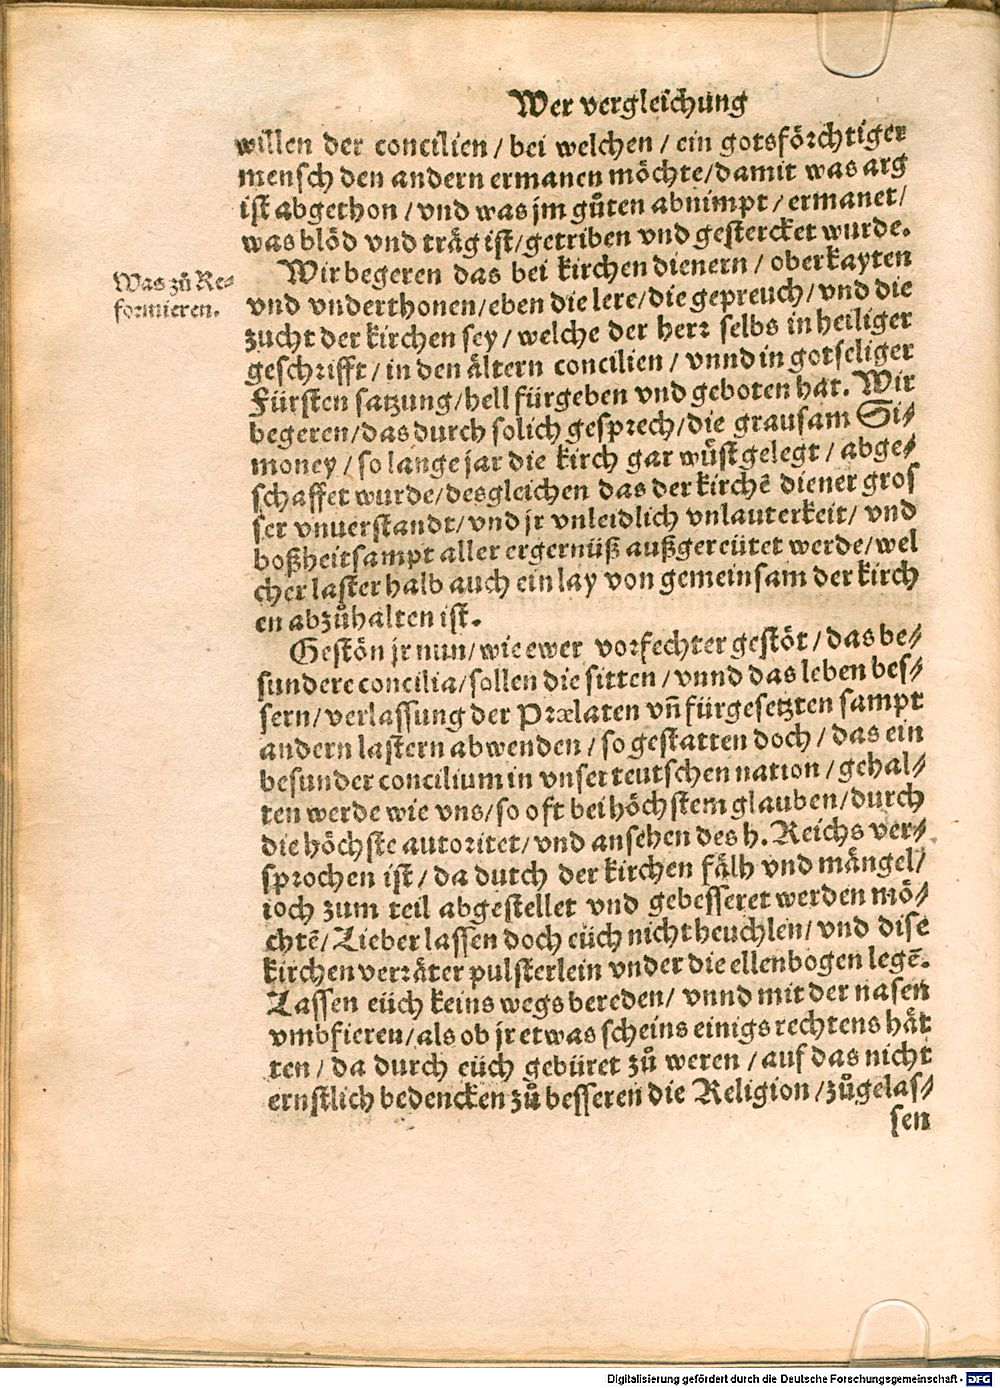 Wer vergleichung
willen der concilien / bei welchen / ein gotsförchtiger
mensch den andern ermanen möchte/damit was arg
ist abgethon / vnd was jm gůten abnimpt / ermanet/
was blöd vnd träg ist/getriben vnd gestercket wurde.
Wir begeren das bei kirchen dienern / oberkayten
Was zů Re-
formieren.
vnd vnderthonen/eben die lere/die gepreuch/vnd die
zucht der kirchen sey / welche der herr selbs in heiliger
geschrifft / in den ältern concilien / vnnd in gotseliger
Fürsten satzung/hell fürgeben vnd geboten hat. Wir
begeren/das durch solich gesprech/die grausam Si-
money / so lange jar die kirch gar wüst gelegt / abge-
schaffet wurde/desgleichen das der kirchē diener gros
ser vnuerstandt/vnd jr vnleidlich vnlauterkeit/ vnd
boßheit sampt aller ergernüß außgereütet werde/wel
cher laster halb auch ein lay von gemeinsam der kirch
en abzůhalten ist.
Gestön jr nun/wie ewer vorfechter gestöt/das be-
sundere concilia/sollen die sitten / vnnd das leben bes-
sern/verlassung der Prælaten vñ fürgesetzten sampt
andern lastern abwenden / so gestatten doch / das ein
besunder concilium in vnser teutschen nation / gehal-
ten werde wie vns/so oft bei höchstem glauben/durch
die höchste autoritet/vnd ansehen des h. Reichs ver-
sprochen ist / da durch der kirchen fälh vnd mängel/
ioch zum teil abgestellet vnd gebesseret werden mö-
chtē/Lieber lassen doch eüch nicht heuchlen/vnd dise
kirchen verräter pulsterlein vnder die ellenbogen legē.
Lassen eüch keins wegs bereden/ vnnd mit der nasen
vmbfieren/als ob jr etwas scheins einigs rechtens hät
ten / da durch eüch gebüret zů weren / auf das nicht
ernstlich bedencken zů besseren die Religion /zůgelas-
sen
Digitalisierung gefördert durch die Deutsche Forschungsgemeinschaft - DFG